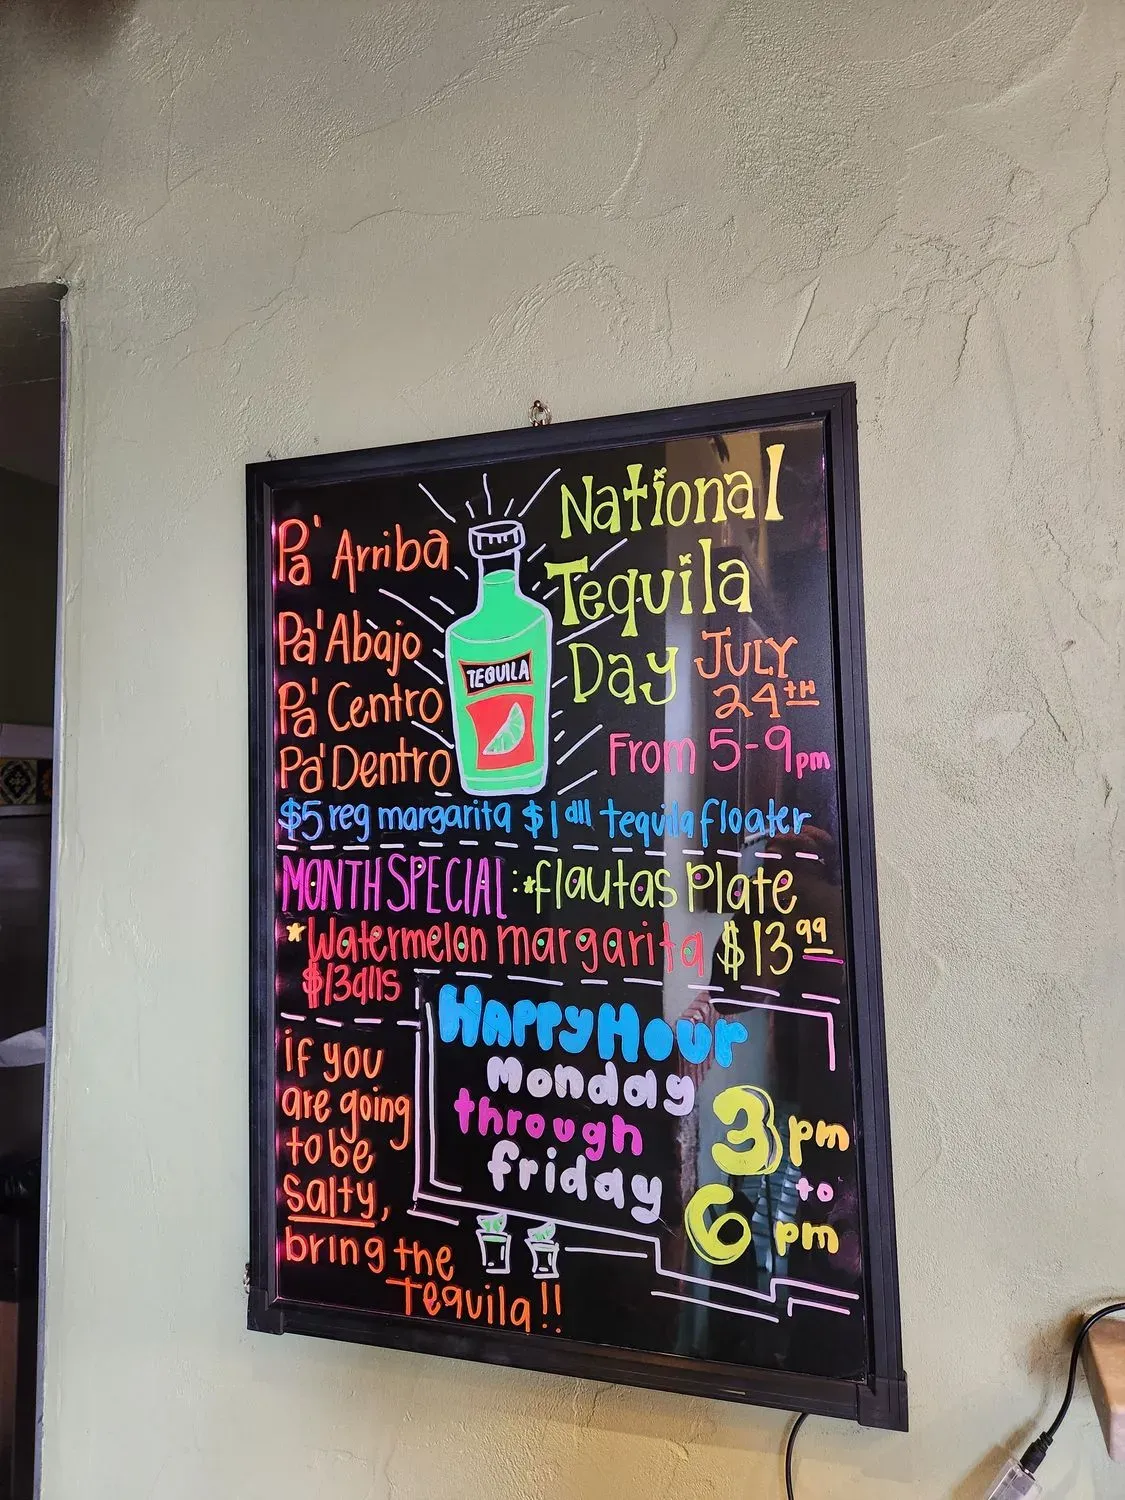 Pa' Arriba
Pa' Abajo
Pa' Centro
Pa' Dentro
TEQUILA
National
Tequila
Day JULY
24TH
From 5-9pm
$5 reg margarita $1 dll tequila floater
MONTH SPECIAL: *flautas Plate
*Watermelon margarita $13 99
$13dlls
HAPPY HOUr
Monday
through
friday
3 pm
to
6 pm
if you
are going
to be
salty,
bring the
Tequila!!